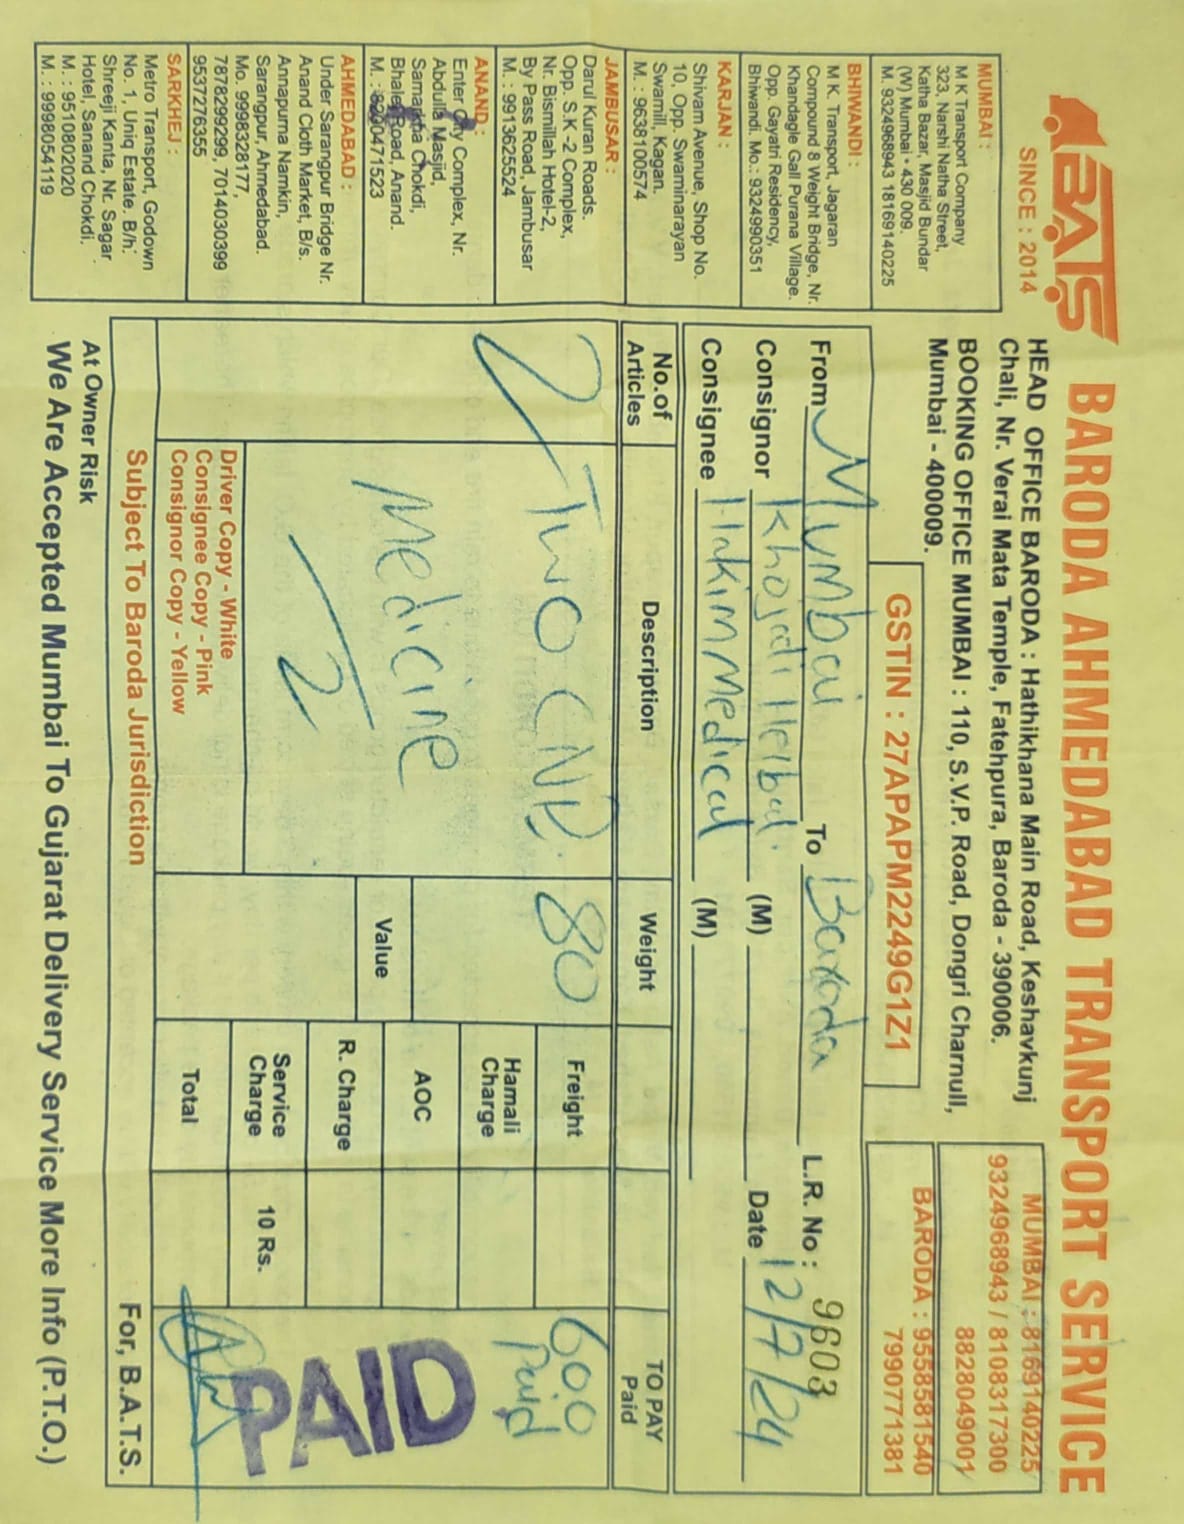 BATS
SINCE : 2014
BARODA AHMEDABAD TRANSPORT SERVICE
HEAD OFFICE BARODA : Hathikhana Main Road, Keshavkunj
Chali, Nr. Verai Mata Temple, Fatehpura, Baroda - 390006.
BOOKING OFFICE MUMBAI : 110, S.V.P. Road, Dongri Charnull,
Mumbai - 400009.
MUMBAI : 8169140225
9324968943 / 8108317300
8828049001
BARODA : 9558581540
7990771381
GSTIN : 27APAPM2249G1Z1
MUMBAI :
M K Transport Company
323, Narshi Natha Street,
Katha Bazar, Masjid Bundar
(W) Mumbai • 430 009.
M. 9324968943 18169140225
BHIWANDI :
M K. Transport, Jagaran
Compound 8 Weight Bridge, Nr.
Khandagle Gall Purana Village.
Opp. Gayatri Residency,
Bhiwandi. Mo.: 9324990351
KARJAN :
Shivam Avenue, Shop No.
10, Opp. Swaminarayan
Swamill, Kagan.
M. : 9638100574
JAMBUSAR :
Darul Kuran Roads.
Opp. S.K -2 Complex,
Nr. Bismillah Hotel-2,
By Pass Road, Jambusar
M. : 9913625524
ANAND :
Enter City Complex, Nr.
Abdulla Masjid,
Samarkha Chokdi,
Bhalej Road, Anand.
M. : 8200471523
AHMEDABAD :
Under Sarangpur Bridge Nr.
Anand Cloth Market, B/s.
Annapurna Namkin,
Sarangpur, Ahmedabad.
Mo. 9998328177,
7878299299, 7014030399
9537276355
SARKHEJ :
Metro Transport, Godown
No. 1, Uniq Estate, B/h.
Shreeji Kanta, Nr. Sagar
Hotel, Sanand Chokdi.
M. : 9510802020
M. : 9998054119
From Mumbai To Baroda L.R. No : 9603
Consignor Khojati Herbal (M) Date 12/7/24
Consignee Hakim Medical (M)
No.of Articles Description Weight TO PAY Paid
2 Two CND. 80 Freight 600
Paid
Medicine
2
Hamali Charge
AOC
Value
R. Charge
Service Charge 10 Rs.
Total
PAID
Driver Copy - White
Consignee Copy - Pink
Consignor Copy - Yellow
Subject To Baroda Jurisdiction For, B.A.T.S.
At Owner Risk
We Are Accepted Mumbai To Gujarat Delivery Service More Info (P.T.O.)